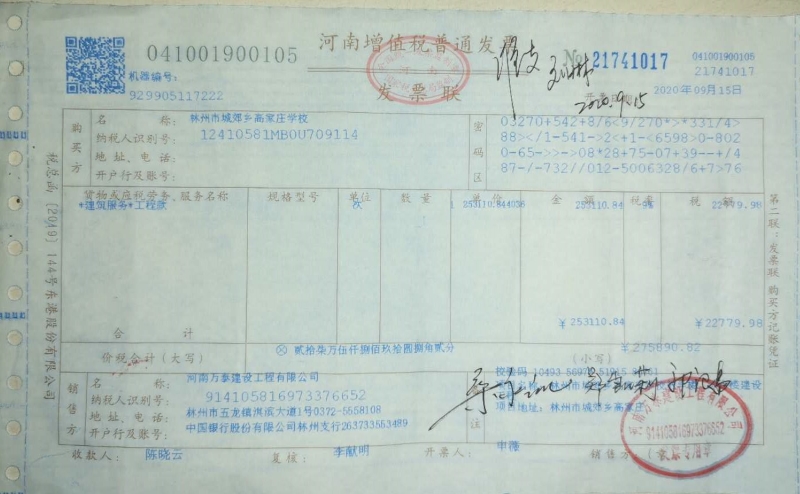 041001900105
河南增值税普通发票
发票联
No 21741017
041001900105
21741017
机器编号:
929905117222
2020年09月15日
2020.9.15
购买方
名 称: 林州市城郊乡高家庄学校
纳税人识别号: 12410581MB0U709114
地 址、电 话:
开户行及账号:
密码区
03270+542+8/6<9/270*>*331/4>
88></1-541->2<+1-<6598>0-802
0-65->>->08*28+75-07+39--+/4
87-/-732//012-5006328/6+7>76
货物或应税劳务、服务名称 规格型号 单位 数 量 单 价 金 额 税率 税 额
*建筑服务*工程款 次 1 253110.844036 253110.84 9% 22779.98
合 计 ¥253110.84 ¥22779.98
价税合计(大写) ⊗ 贰拾柒万伍仟捌佰玖拾圆捌角贰分 (小写) ¥275890.82
销售方
名 称: 河南万泰建设工程有限公司
纳税人识别号: 914105816973376652
地 址、电 话: 林州市五龙镇淇滨大道1号0372-5558108
开户行及账号: 中国银行股份有限公司林州支行263733553489
项目地址: 林州市城郊乡高家庄
收款人: 陈晓云 复核: 李献明 开票人: 申瑾 销售方:(章)
914105816973376652
发票专用章
税总函〔2019〕144号东港股份有限公司
第二联:发票联 购买方记账凭证